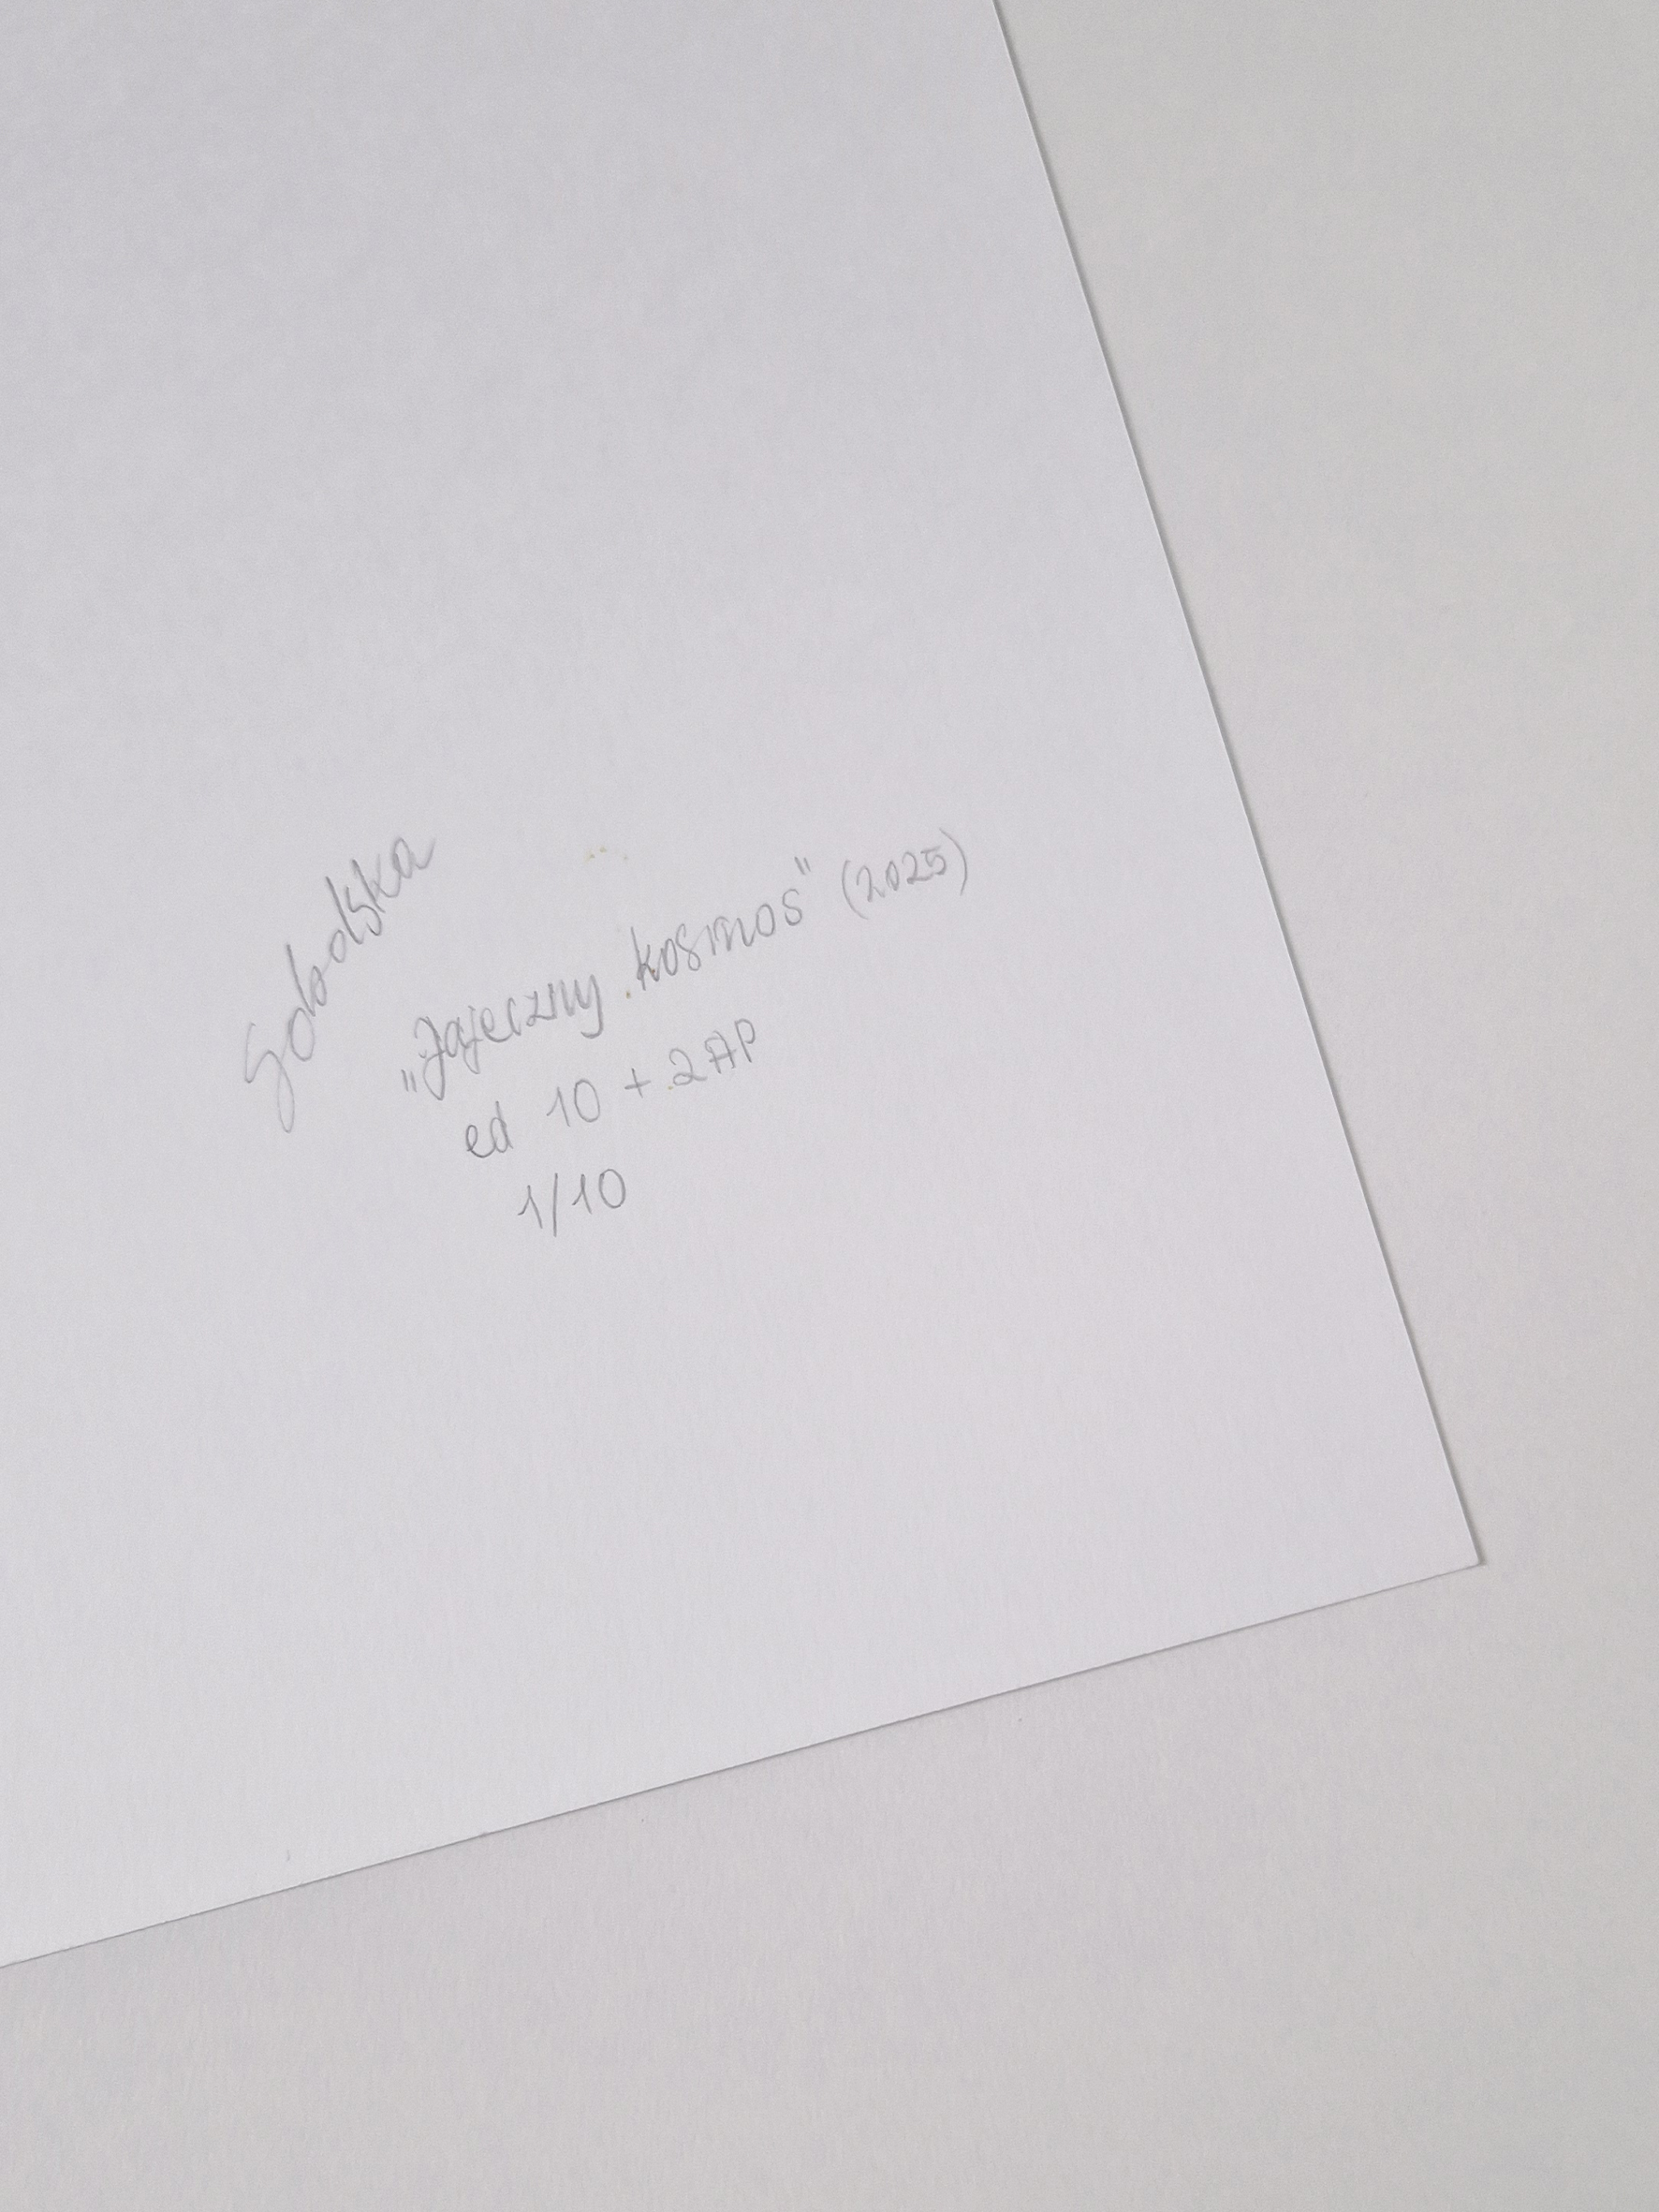 Sobolska
„Jajeczny kosmos" (2025)
ed 10 + 2 AP
1/10